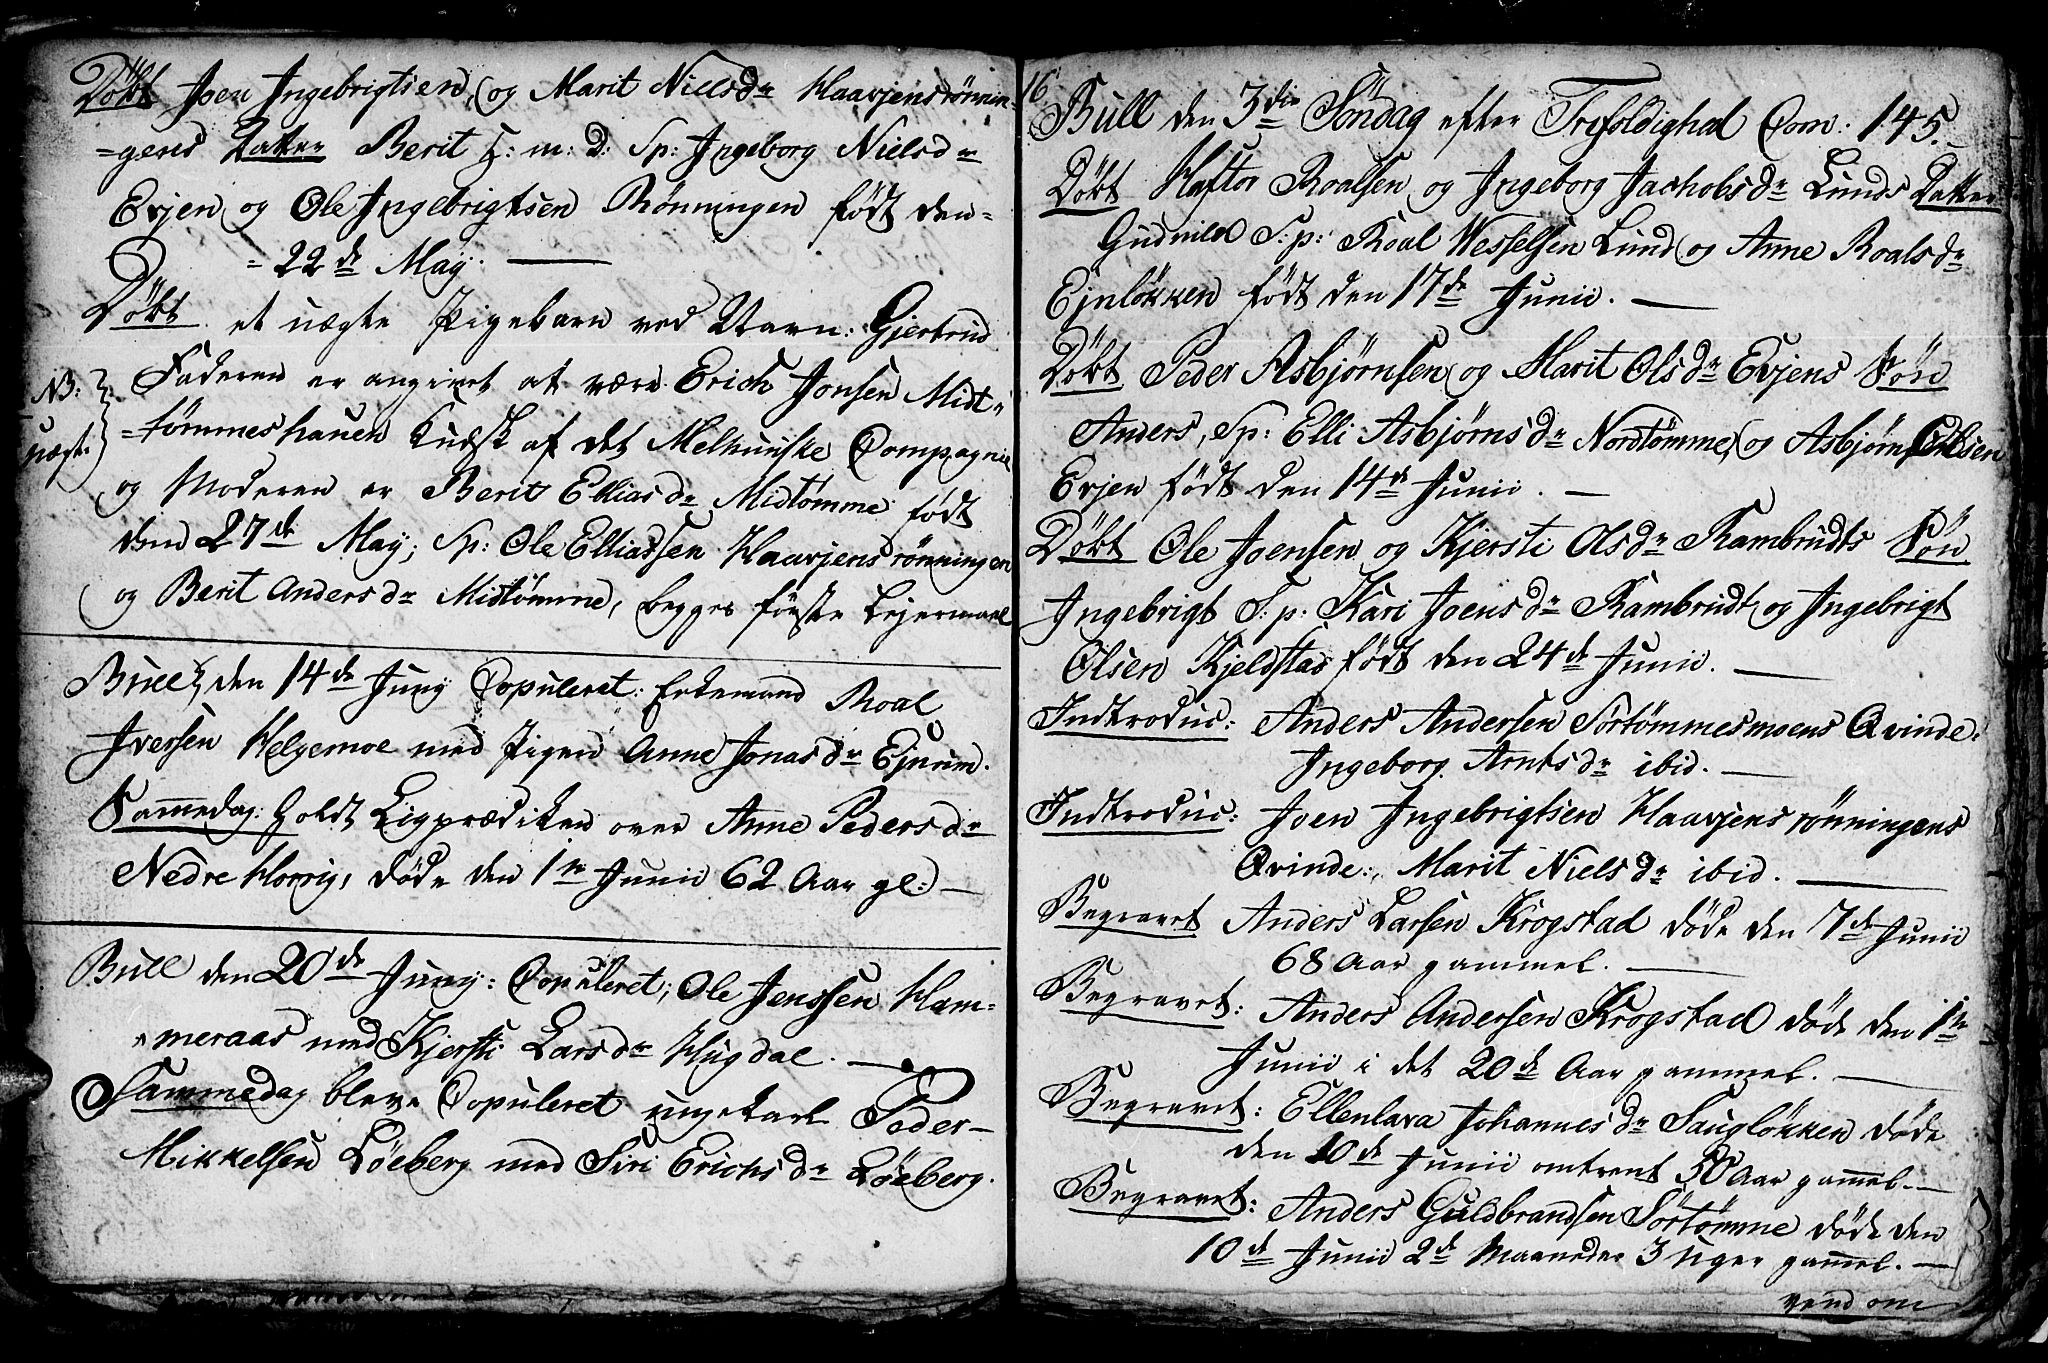 Döbt Joen Ingebrigtsen, og Marit Nielsdr Haavjensrönnin-
=gens Datter Berit H: m: D: Sp: Ingeborg Nielsdr
Evjen og Ole Ingebrigtsen Rönningen födt den=
= 22de May. —
Döbt et uægte Pigebarn ved Navn: Gjertrud
NB: uægte
Faderen er angivet at være Erich Jonsen Midt-
=tömmeshauen Kudsk af det Melhuuske Compagnie
og Moderen er Berit Elliasdr Midtömme födt
den 27de May; Sp: Ole Elliassen Haavjensrönningen
og Berit Andersdr Midtömme, begges förste Lejermaal
Bull, den 14de Juny Copuleret: Enkemand Roal
Iversen Helgemoe med Pigen Anne Jonasdr Ejnum.
Sammedag: holdt Ligprædiken over Anne Pedersdr
Nedre Horrig, döde den 1te Junii 62 Aar gl: —
Bull den 20de Juny: Copuleret; Ole Jenssen Ham=
=meraas med Kjersti Larsdr Hugdal. —
Sammedag bleve Copuleret ungekarl Peder
Mikkelsen Löeberg med Siri Erichsdr Löeberg.
16
Bull den 3die Söndag efter Trefoldighed Com: 145.
Döbt Haftor Roalsen og Ingeborg Jachobsdr Lunds Datter
Gudnild S: p: Roal Wesselsen Lund og Anne Roalsdr
Ejnlökken födt den 17de Junii. —
Döbt Peder Asbjörnsen og Marit Olsdr Evjens Sön
Anders, Sp: Elli Asbjörnsdr Nordtömme, og Asbjörn Olsen
Evjen födt den 14de Junii. —
Döbt Ole Joensen og Kjersti Olsdr Kambrudts Sön
Ingebrigt S: p: Kari Joensdr Kambrudt og Ingebrigt
Olsen Kjeldstad födt den 24de Junii. —
Indtroduc: Anders Andersen Sörtömmesmoens Qvinde:
Ingeborg Arntsdr ibid. —
Indtroduc: Joen Ingebrigtsen Haavjensrönningens
Qvinde:, Marit Nielsdr ibid. —
Begravet Anders Larsen Krogstad döde den 7de Junii
68 Aar gammel. —
Begravet: Anders Andersen Krogstad döde den 1te
Junii i det 20de Aar gammel. —
Begravet: Ellenlava Johannesdr Sauglökken döde
den 10de Junii omtrent 50 Aar gammel. —
Begravet: Anders Guldbrandsen Sörtömme döde den
10de Junii 2de Maaneder 3 Uger gammel. —
vend om